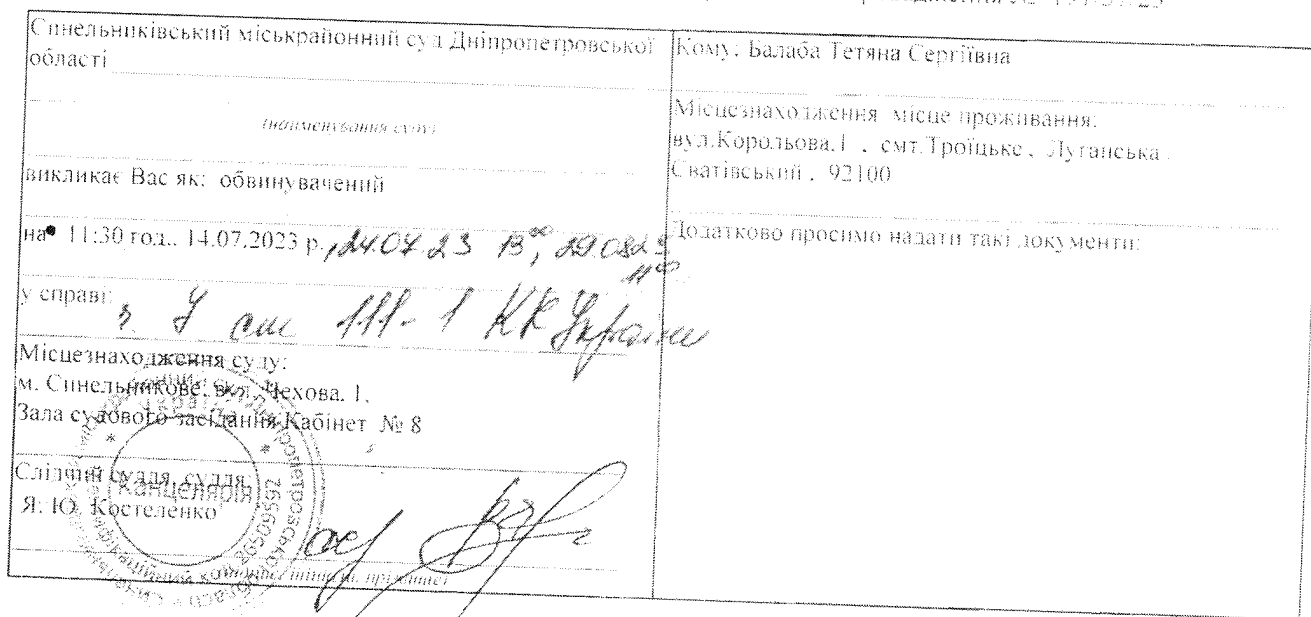 Синельниківський міськрайонний суд Дніпропетровської
області
(найменування суду)
викликає Вас як: обвинувачений
на 11:30 год., 14.07.2023 р., 24.07.23 13⁰⁰, 29.08.23
11⁰⁰
у справі:
ч. 4 ст 111-1 КК України
Місцезнаходження суду:
м. Синельникове, вул. Чехова, 1,
Зала судового засідання Кабінет № 8
Слідчий суддя, суддя:
Я. Ю. Костеленко
Канцелярія
26509592
Кому: Балаба Тетяна Сергіївна
Місцезнаходження місце проживання:
вул.Корольова,1 , смт.Троїцьке , Луганська ,
Сватівський , 92100
Додатково просимо надати такі документи: